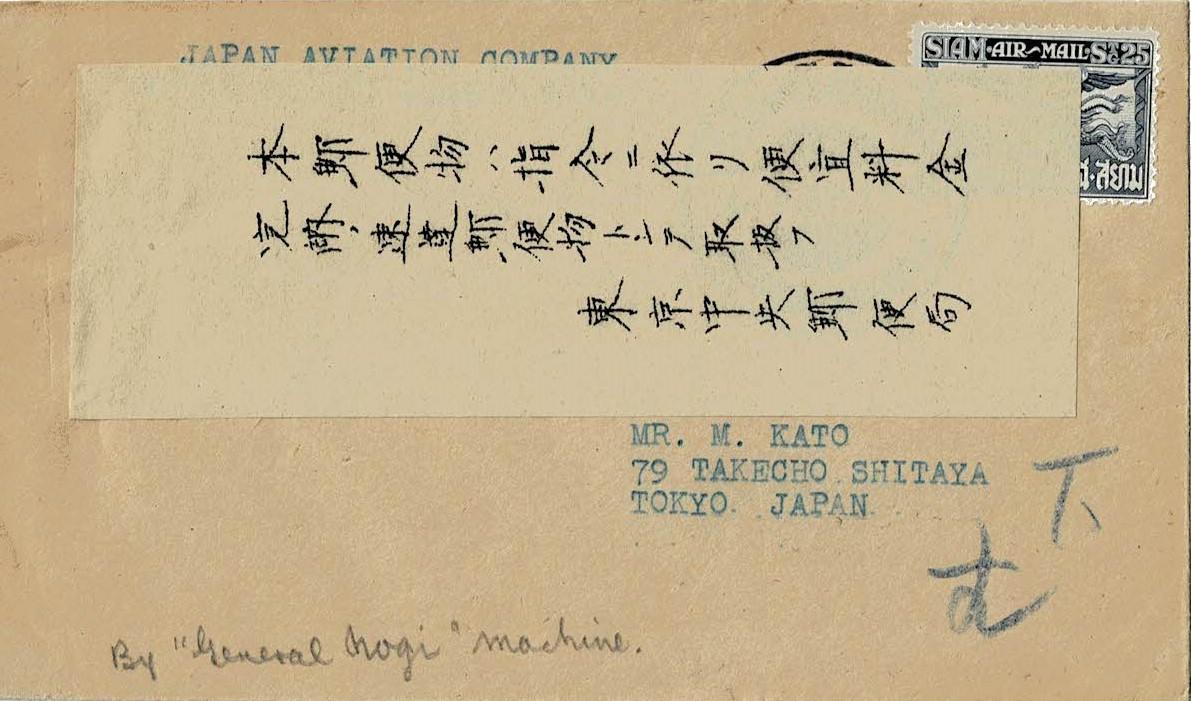 JAPAN AVIATION COMPANY
SIAM·AIR-MAIL·Sᵗ25
สยาม
本郵便物ハ指令ニ依リ便宜料金
完納、速達郵便物トシテ取扱フ
東京中央郵便局
MR. M. KATO
79 TAKECHO SHITAYA
TOKYO. JAPAN
下
By "General Nogi" machine.